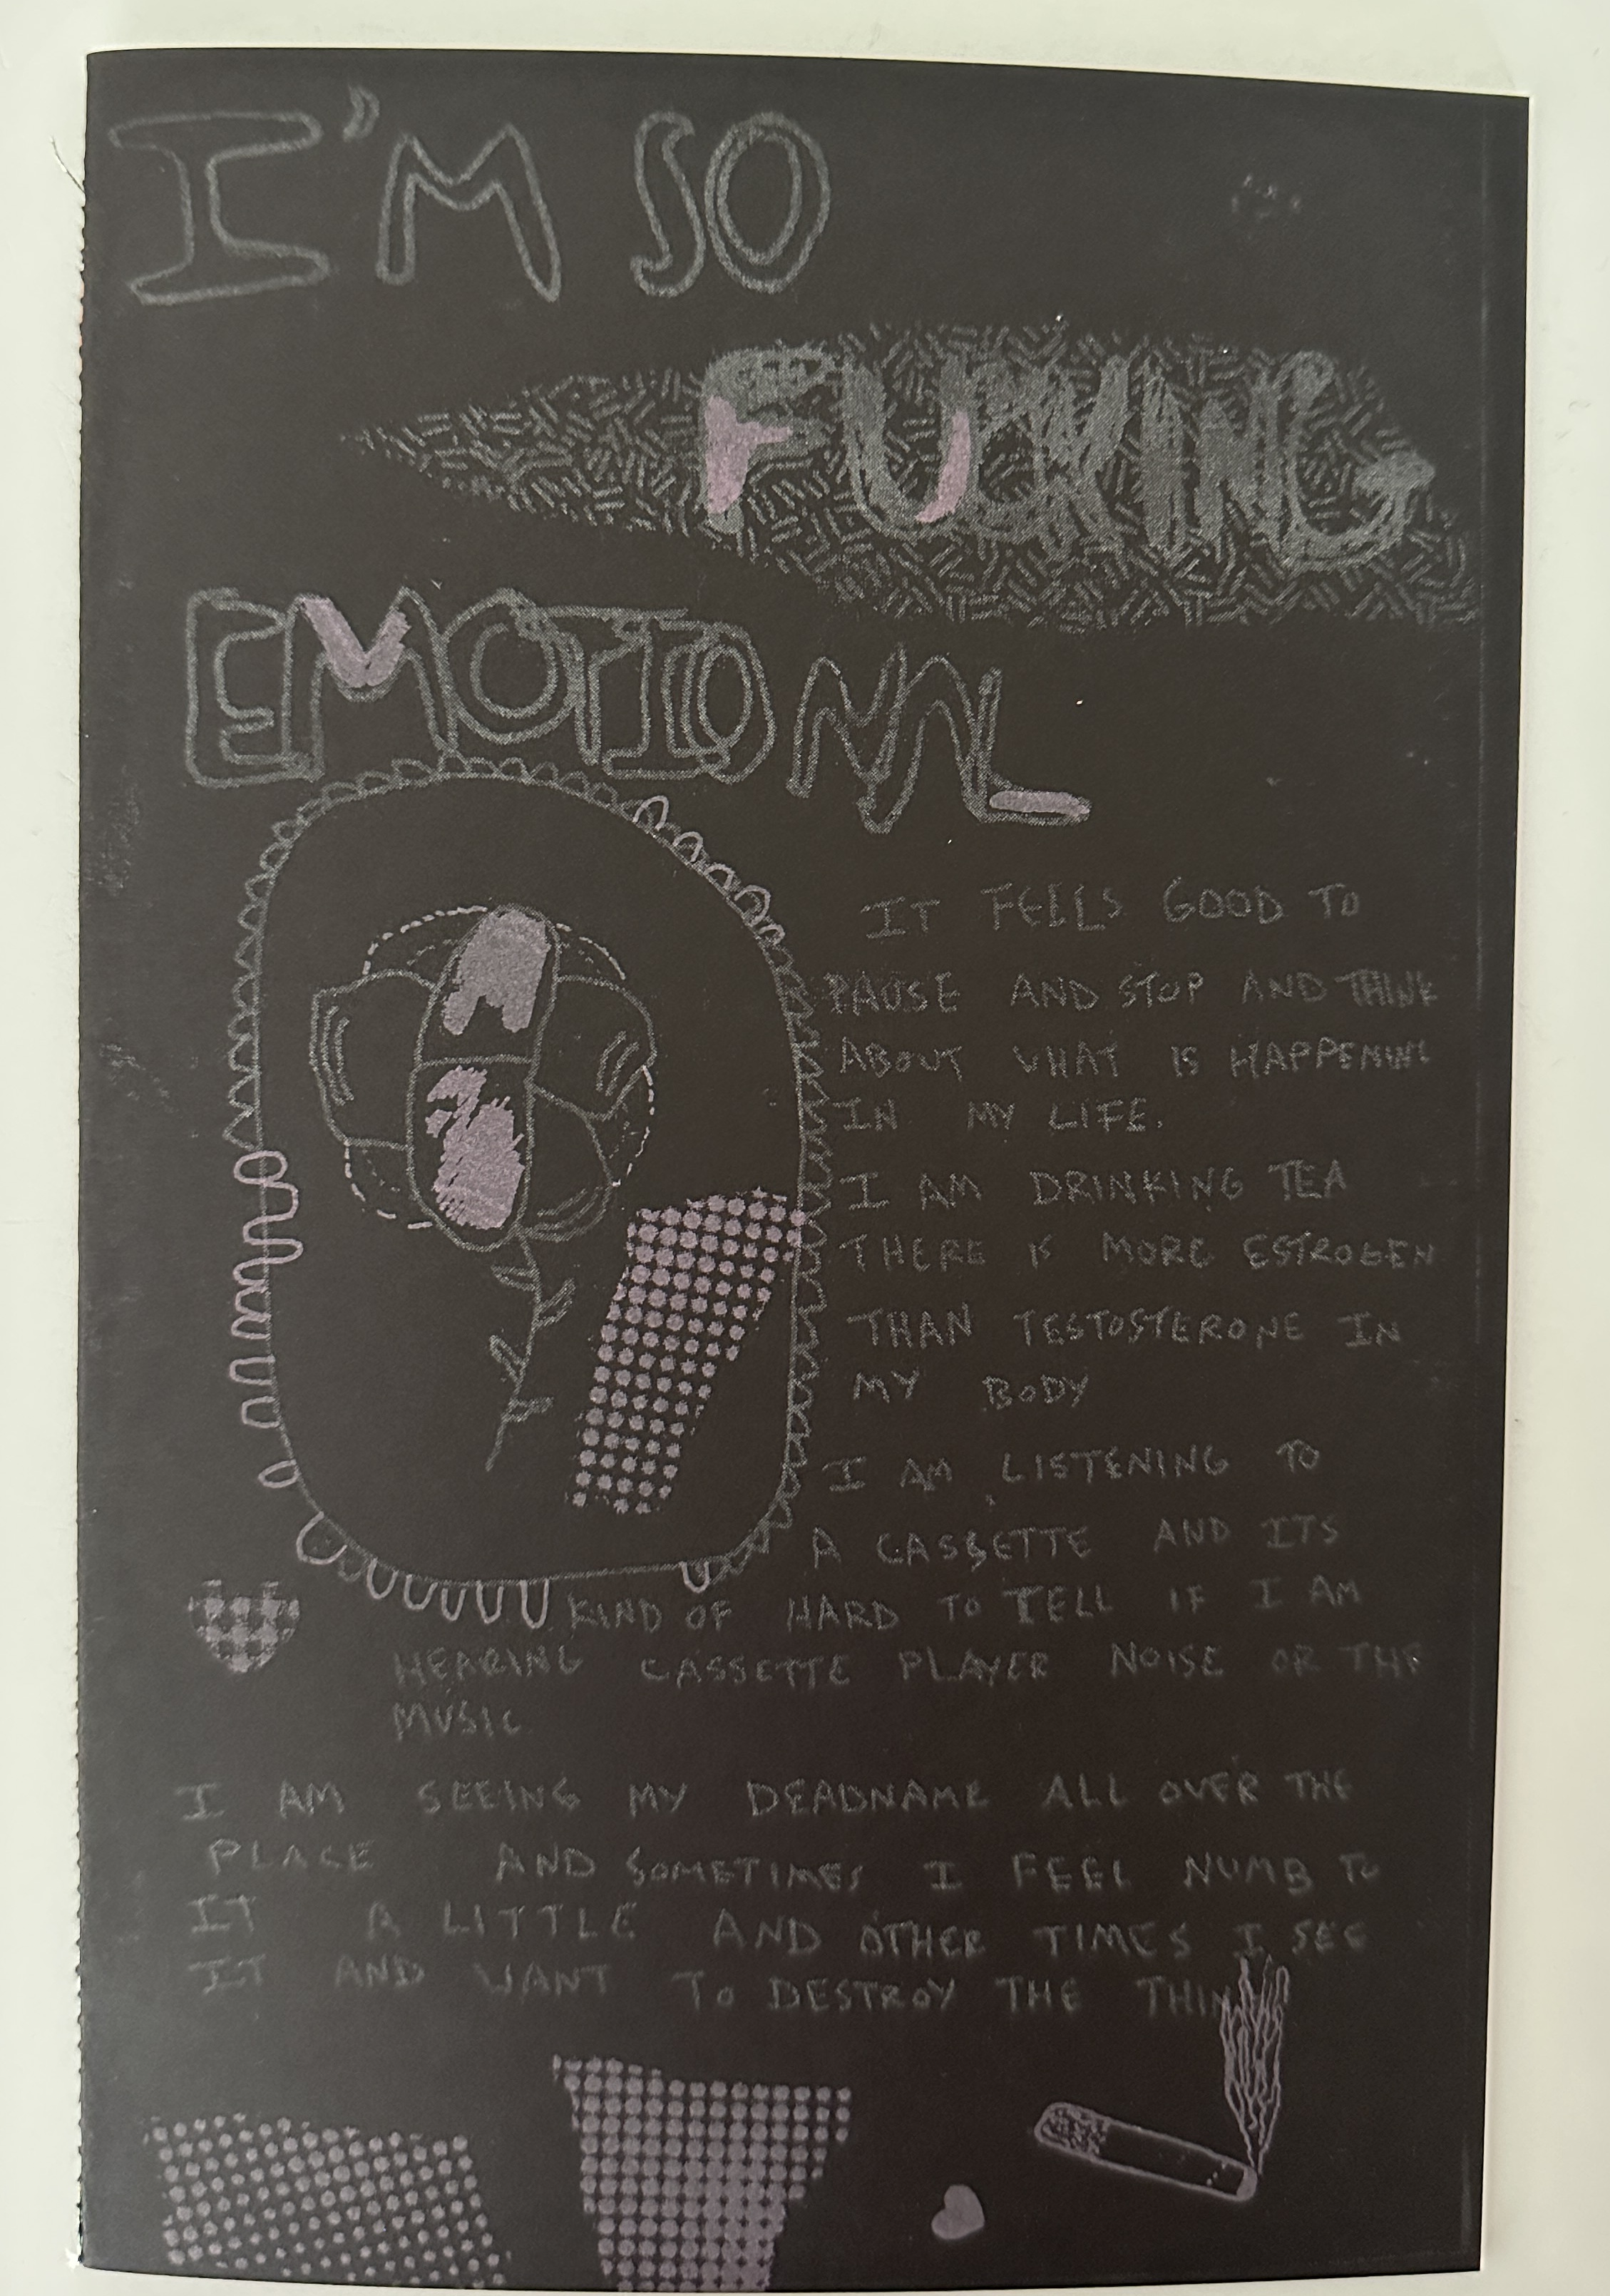 I'M SO
FUCKING
EMOTIONAL
IT FEELS GOOD TO
PAUSE AND STOP AND THINK
ABOUT WHAT IS HAPPENING
IN MY LIFE.
I AM DRINKING TEA
THERE IS MORE ESTROGEN
THAN TESTOSTERONE IN
MY BODY
I AM LISTENING TO
A CASSETTE AND ITS
KIND OF HARD TO TELL IF I AM
HEARING CASSETTE PLAYER NOISE OR THE
MUSIC
I AM SEEING MY DEADNAME ALL OVER THE
PLACE AND SOMETIMES I FEEL NUMB TO
IT A LITTLE AND OTHER TIMES I SEE
IT AND WANT TO DESTROY THE THING